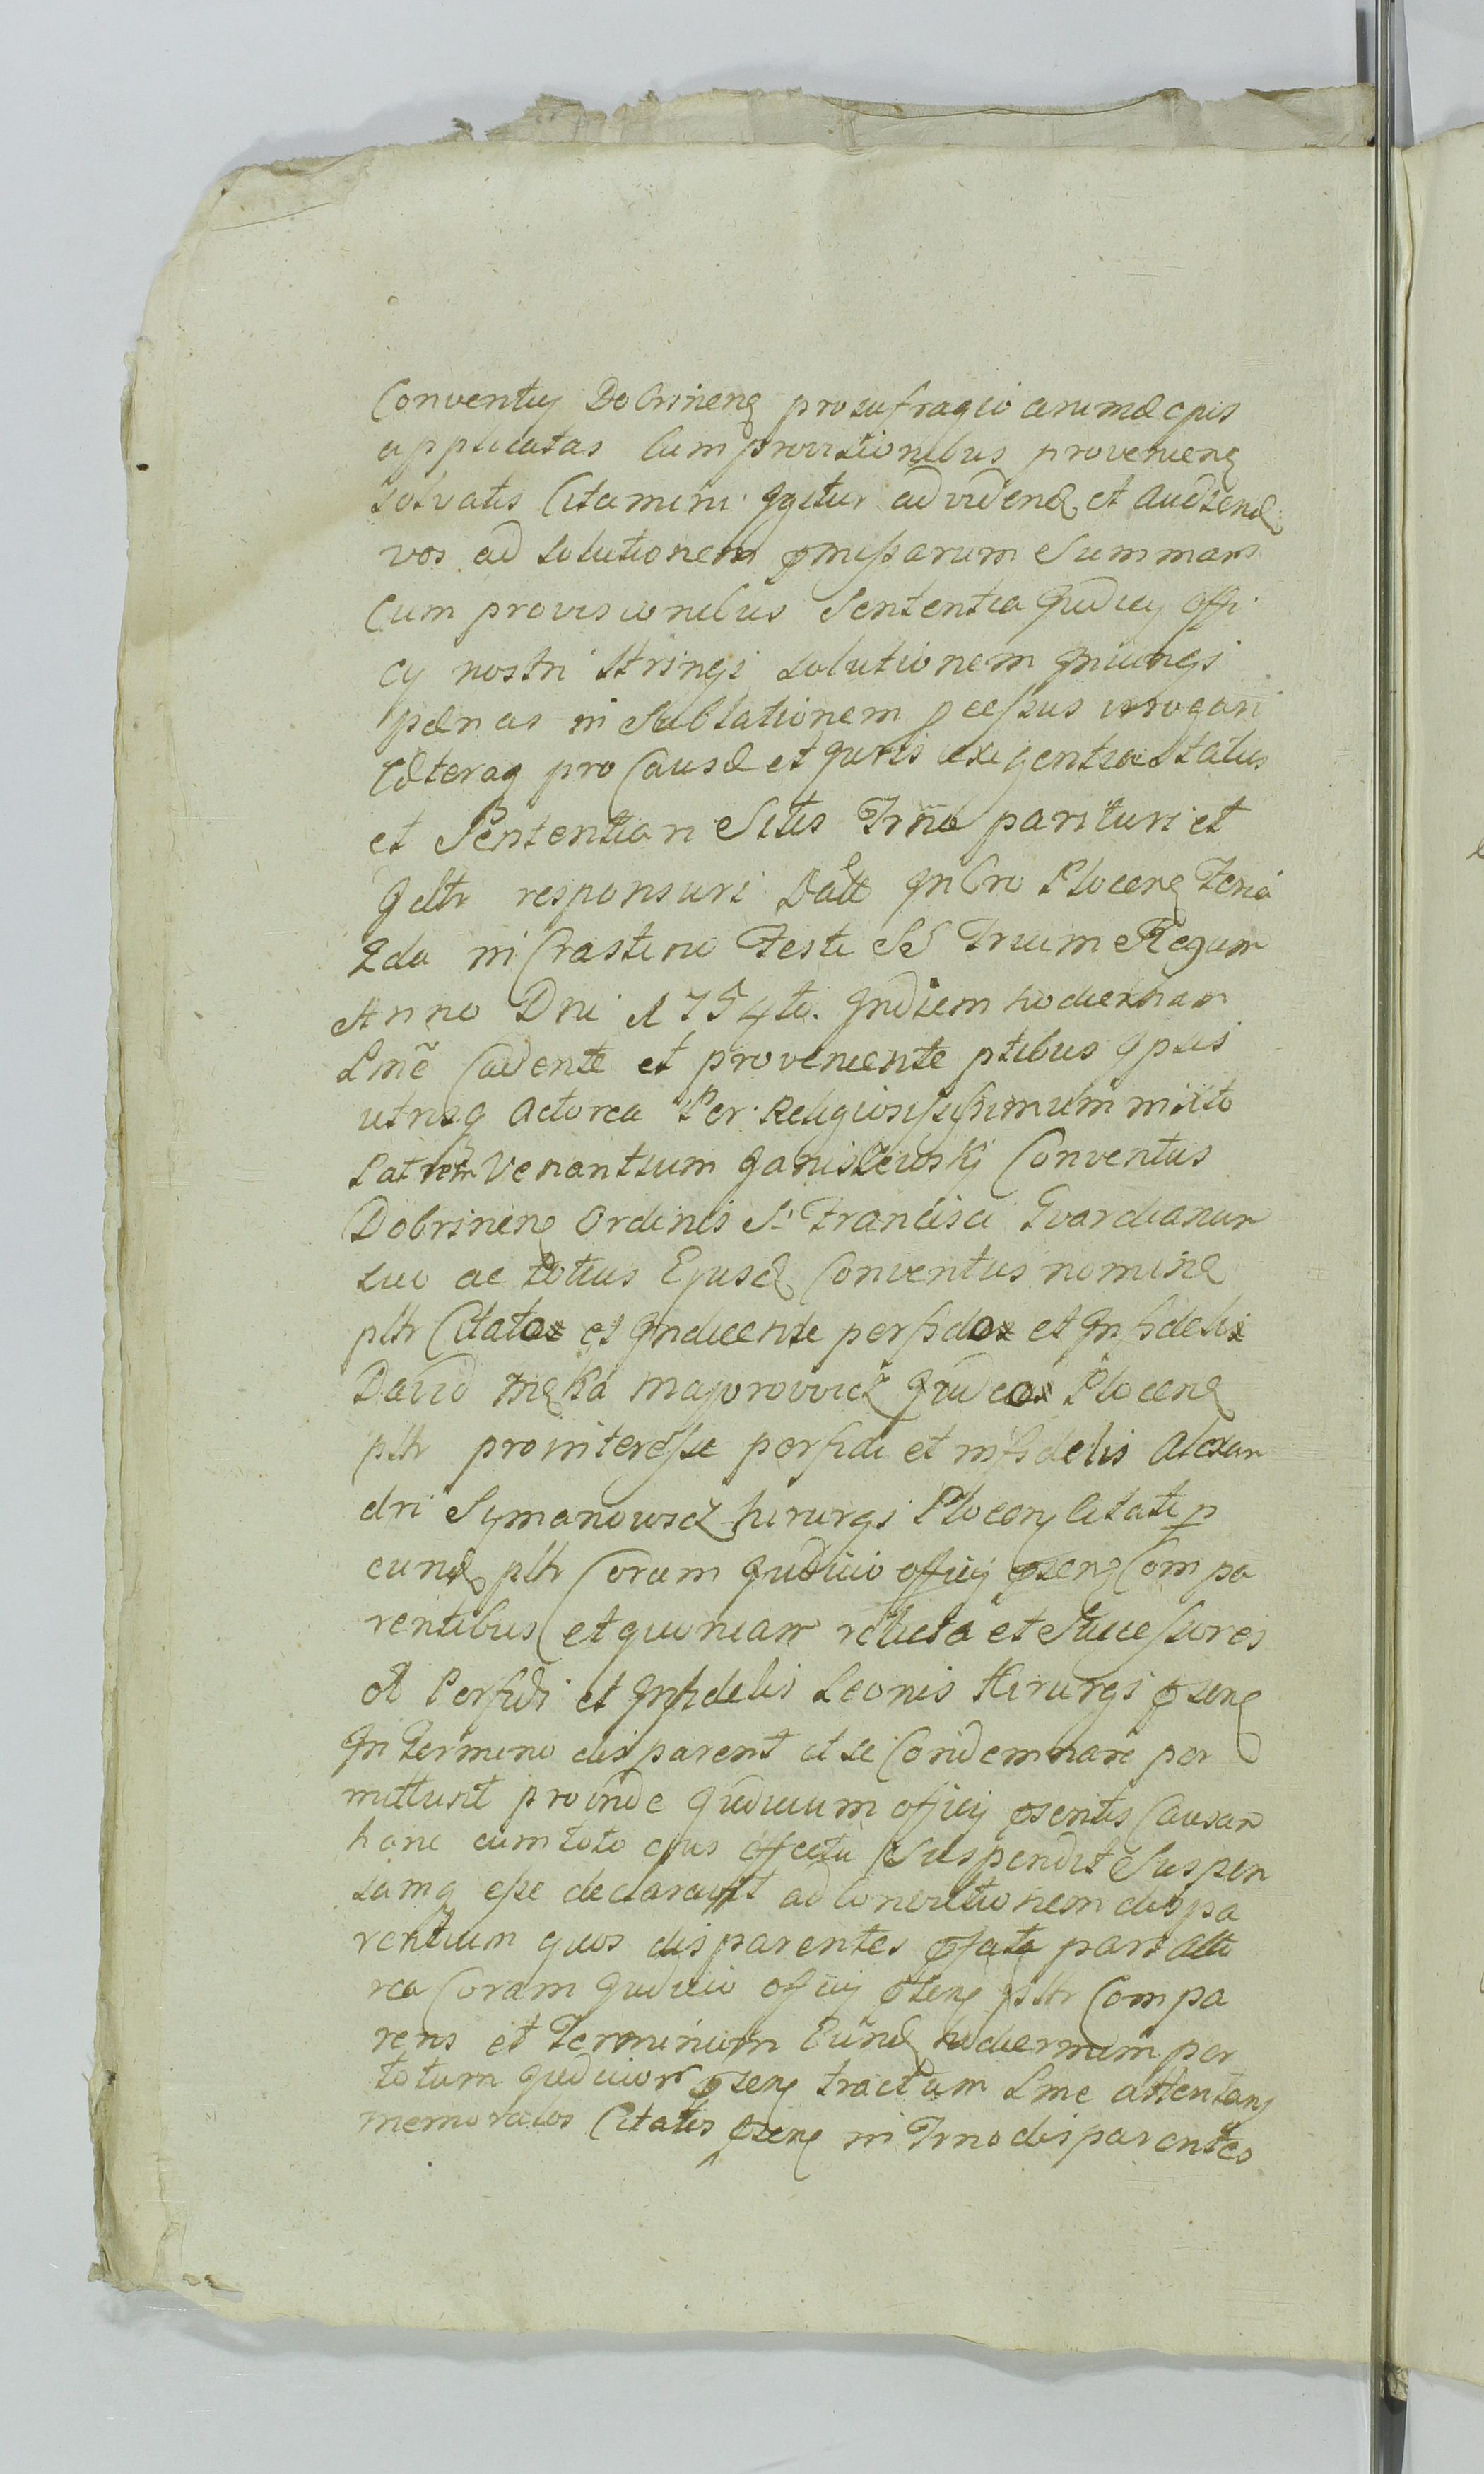 Conventus Dobrinens pro sufragio animæ ejus
applicatas cum provisionibus provenienq
solvatis Citamini igitur ad videnđ et audienđ
vos ad solutionem pmissarum Summarum
Cum provisionibus Sententia Judicij offi
cij nostri stringi solutionem Injungi
pænas in sublationem pcessus irrogari
Cæteraq pro Causæ et Juris exigentia Statui
et Sententiari Sitis Tr̃no parituri et
Jcltr responsuri Datt In Cro Plocenq Feria
2da in Crastino Festi SS Trium Regum
Anno Dni 1754to. In diem hodiernam
Lmẽ Cadente et proveniente ptibus ipsis
utrisq Actorea Per Religiosissimum in Xto
Patrem Venantium Janiszewskj Conventus
Dobrinenq Ordinis S. Francisci Gvardianum
suo ac totius Ejusd Conventus nomine
pltr Citatox et Inducente perfidox et Infidelix
David Majorowicz Judeox Plocenq
pltr pro interesse perfidi et infidelis Alexan
dri Symanowicz hirurgi Plocenq Citati p
eund pltr Coram Judicio officij psenq Compa
rentibus et quoniam relicta et Successores
ol Perfidi et Infidelis Leonis Hirurgi psenq
In Termino disparent et se Condemnare per
mittunt proinde Judicium officij psentis Causam
hanc cum toto ejus effectu Suspendit Suspen
samq esse declaravit ad Convictionem dispa
rentium quos disparentes pfata pars Acto
rea Coram Judicio officij psenq pltr Compa
rens et Terminum Eund hodiernum per
totum Judicior psenq tractum Lme attentans
memoratos Citatos psenq in Tr̃no disparentes